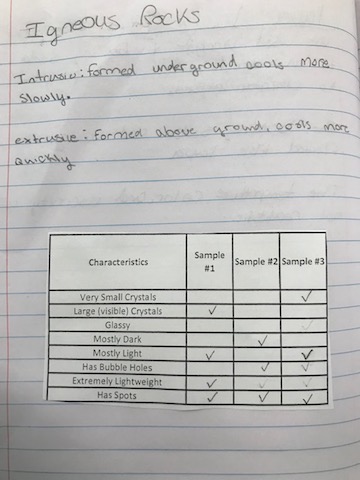 Igneous Rocks
Intrusive: formed underground cools more
slowly.
extrusive: Formed above ground, cools more
quickly
Characteristics Sample #1 Sample #2 Sample #3
Very Small Crystals ✓
Large (visible) Crystals ✓
Glassy ✓
Mostly Dark ✓
Mostly Light ✓ ✓
Has Bubble Holes ✓ ✓
Extremely Lightweight ✓ ✓ ✓
Has Spots ✓ ✓ ✓